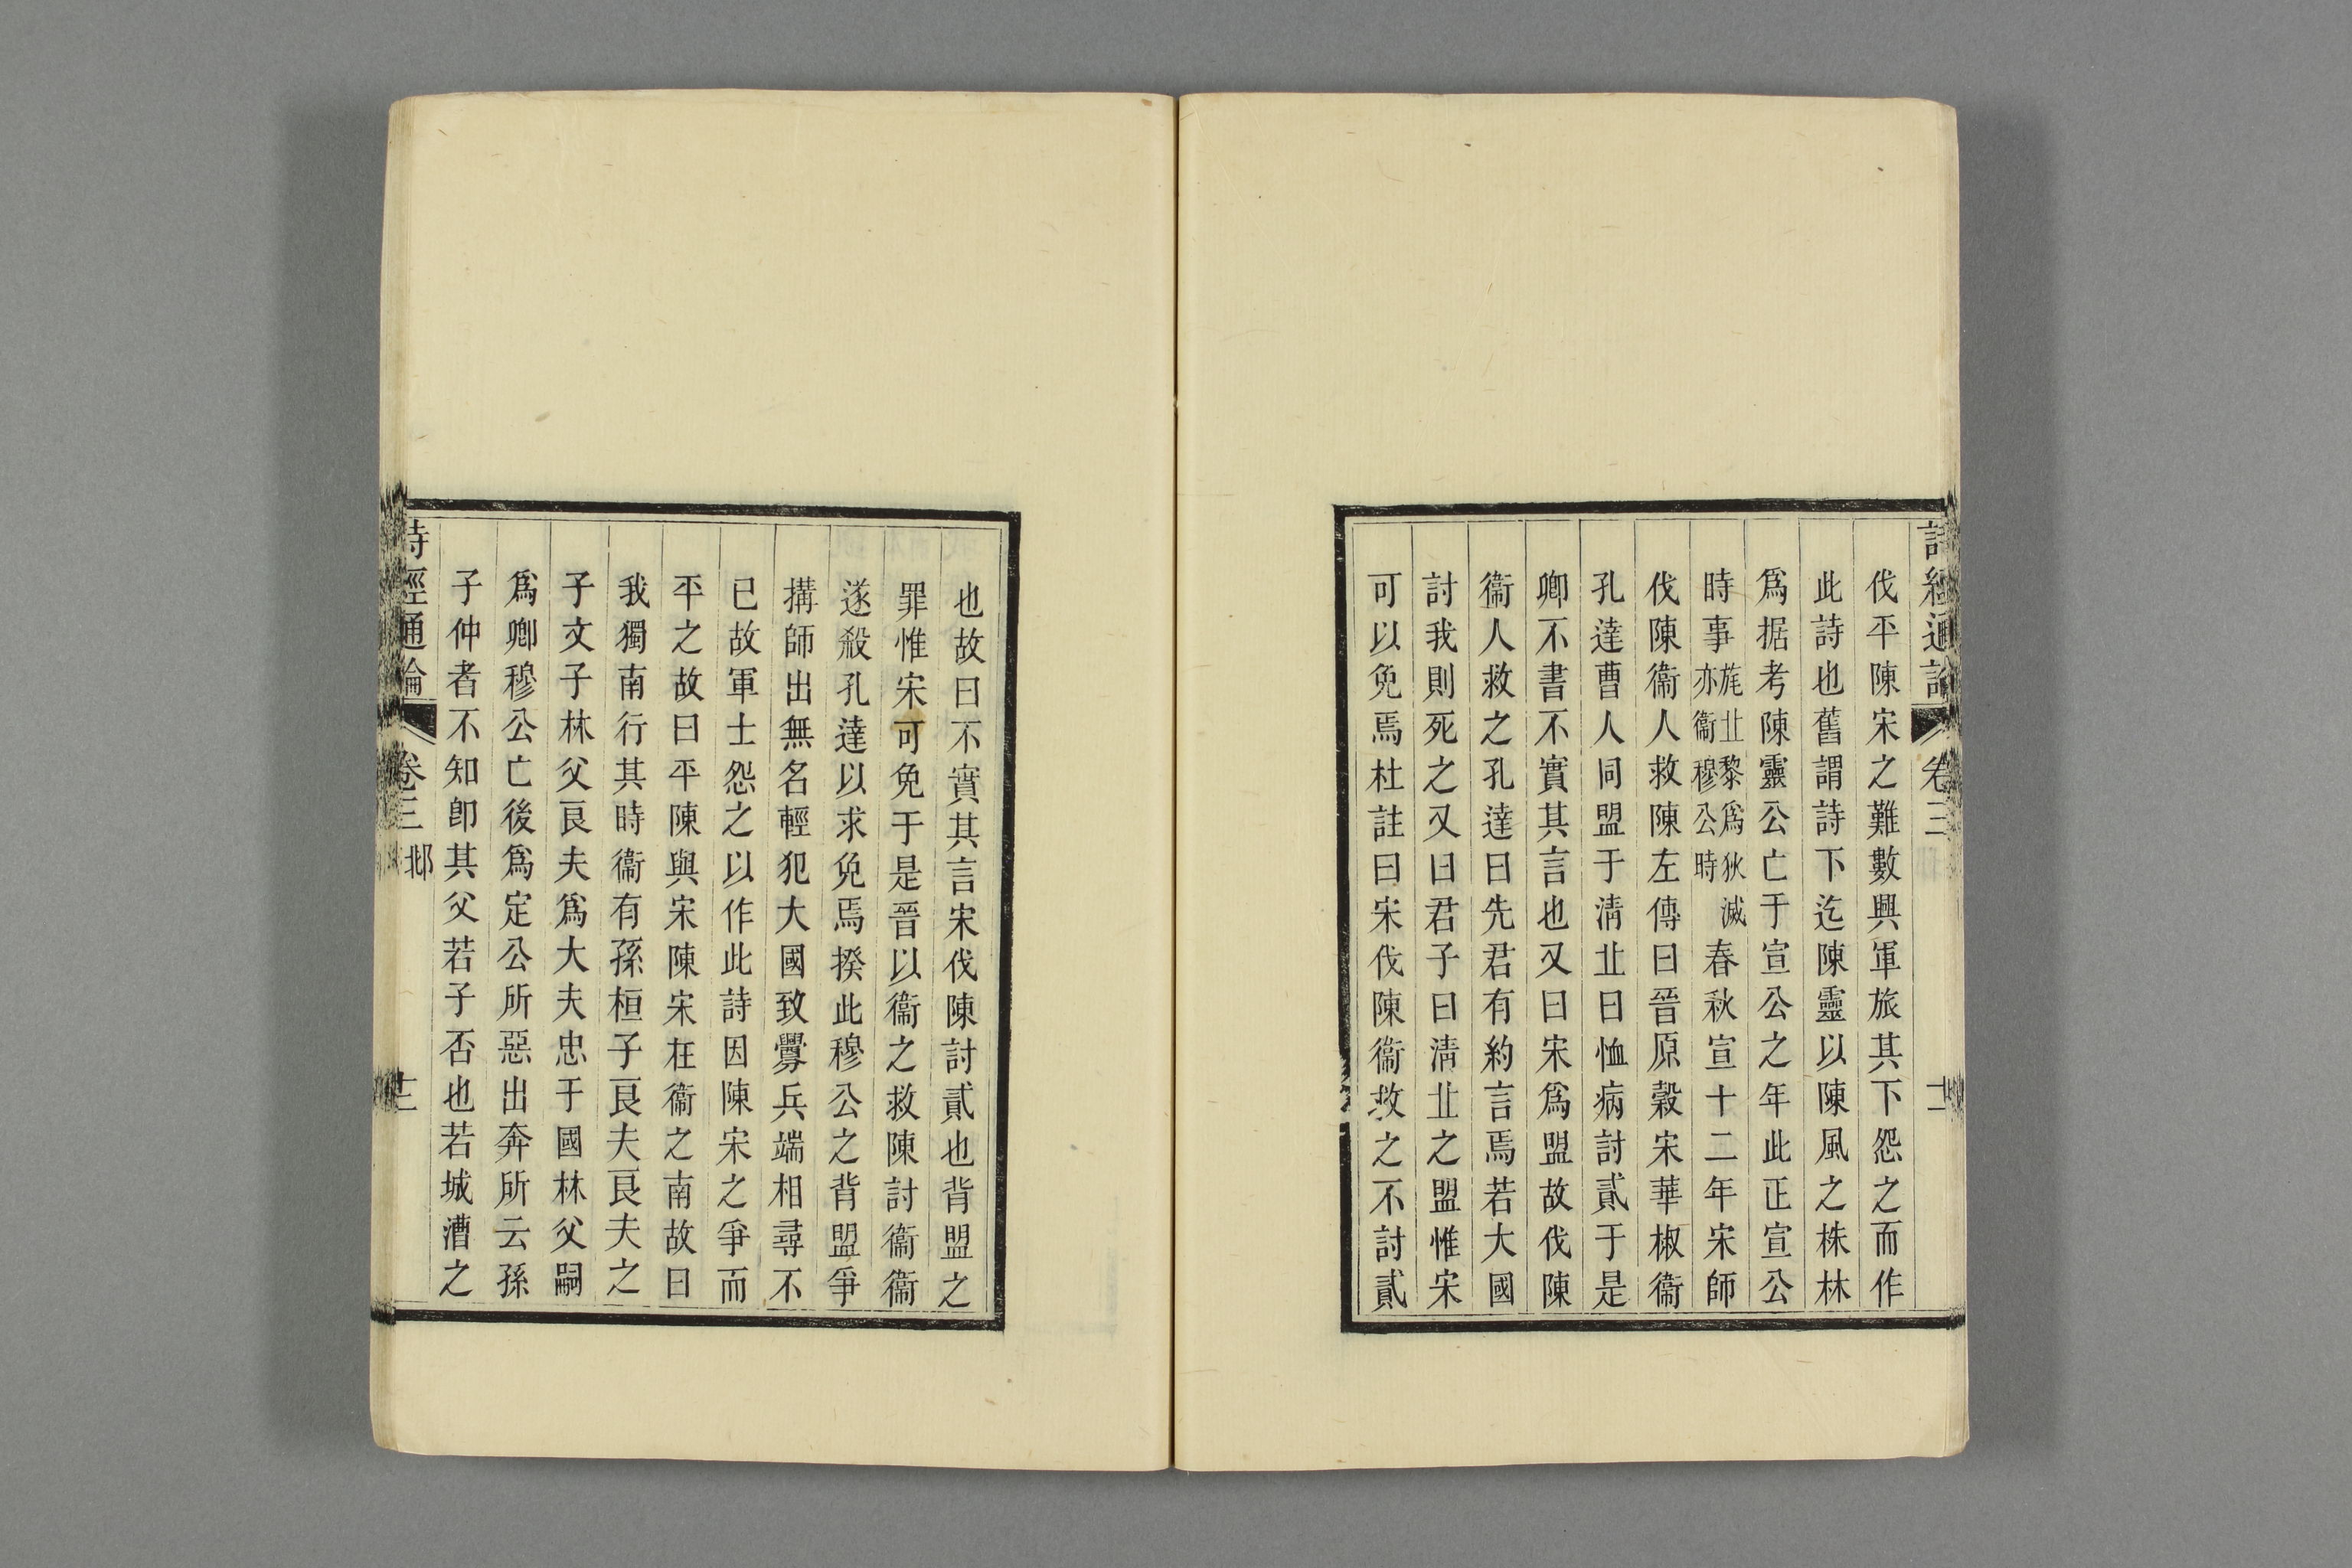 詩經通論 卷三 十二
伐平陳宋之難數興軍旅其下怨之而作
此詩也舊謂詩下迄陳靈以陳風之株林
爲据考陳靈公亡于宣公之年此正宣公
時事旄丠黎爲狄滅亦衞穆公時春秋宣十二年宋師
伐陳衞人救陳左傳曰晉原縠宋華椒衞
孔達曹人同盟于淸丠曰恤病討貳于是
卿不書不實其言也又曰宋爲盟故伐陳
衞人救之孔達曰先君有約言焉若大國
討我則死之又曰君子曰淸丠之盟惟宋
可以免焉杜註曰宋伐陳衞救之不討貳
也故曰不實其言宋伐陳討貳也背盟之
罪惟宋可免于是晉以衞之救陳討衞衞
遂殺孔達以求免焉揆此穆公之背盟爭
搆師出無名輕犯大國致釁兵端相尋不
已故軍士怨之以作此詩因陳宋之爭而
平之故曰平陳與宋陳宋在衞之南故曰
我獨南行其時衞有孫桓子良夫良夫之
子文子林父良夫爲大夫忠于國林父嗣
爲卿穆公亡後爲定公所惡出奔所云孫
子仲者不知卽其父若子否也若城漕之
詩經通論 卷三 邶